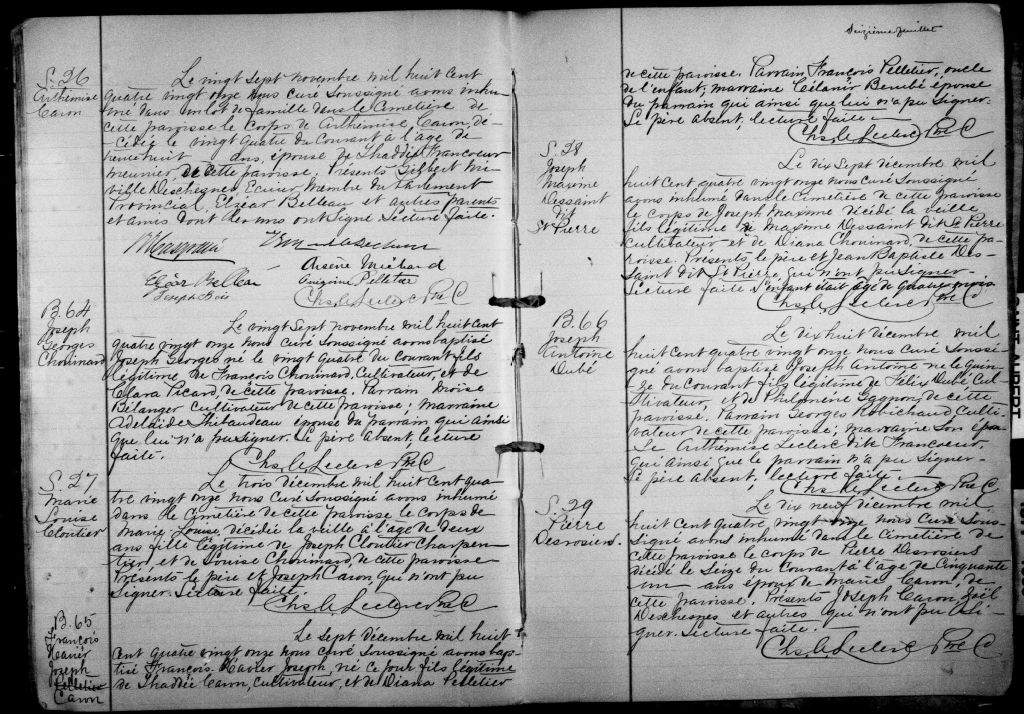 S. 26
Arthémise
Caron
Le vingt sept novembre mil huit cent
quatre vingt onze nous curé soussigné avons inhu-
mé dans un lot de famille dans le Cimetière de
cette paroisse le Corps de Arthémise Caron, dé-
cédée le vingt quatre du Courant à l'age de
trente huit ans, épouse de Thaddée Francoeur
meunier, de cette paroisse. Présents Gilbert Mi-
ville Deschesnes, Ecuier, Membre du Parlement
Provincial, Elzéar Belleau et autres parents
et amis dont les uns ont signé Lecture faite.
Elzéar Belleau
Joseph
Arsène Michaud
Onésime Pelletier
Chs. Le Leclerc Ptre C
B. 64
Joseph
Georges
Chouinard
Le vingt Sept novembre mil huit cent
quatre vingt onze nous curé soussigné avons baptisé
Joseph Georges né le vingt quatre du courant fils
légitime de François Chouinard, Cultivateur, et de
Clara Picard, de cette paroisse. Parrain Moïse
Bélanger Cultivateur de cette paroisse; marraine
Adelaïde Thibaudeau épouse du parrain qui ainsi
que lui n'a pu signer. Le père absent, lecture
faite.
Chs. Le Leclerc Ptre C
S. 27
Marie
Louise
Cloutier
Le trois décembre mil huit cent qua-
tre vingt onze nous Curé Soussigné avons inhumé
dans le Cimetière de cette paroisse le corps de
Marie Louise, décédée la veille à l'age de deux
ans fille légitime de Joseph Cloutier Charpen-
tier, et de Louise Chouinard, de cette paroisse.
Présents le père et Joseph Caron, qui n'ont pu
signer. Lecture faite.
Chs. Le Leclerc Ptre C
B. 65
François
Xavier
Joseph
Pelletier
Caron
Le sept décembre mil huit
cent quatre vingt onze nous curé soussigné avons bap-
tisé François Xavier Joseph né ce jour fils légitime
de Thaddée Caron, cultivateur, et de Diana Pelletier
Seizième feuillet
de cette paroisse. Parrain François Pelletier, oncle
de l'enfant; marraine Célanir Bérubé épouse
du parrain qui ainsi que lui n'a pu signer.
Le père absent, lecture faite.
Chs. Le Leclerc Ptre C
S. 28
Joseph
Maxime
Dessaint
dit
St Pierre
Le dix Sept décembre mil
huit cent quatre vingt onze nous curé Soussigné
avons inhumé dans le Cimetière de cette paroisse
le corps de Joseph Maxime décédé la veille
fils légitime de Maxime Dessaint dit St Pierre
Cultivateur et de Diana Chouinard, de cette pa-
roisse. Présents, le père et Jean Baptiste Des-
Saint dit St Pierre, qui n'ont pu signer.
Lecture faite L'enfant était agé de quatre mois
Chs. Le Leclerc Ptre C
B. 66
Joseph
Antoine
Dubé
Le dix huit décembre mil
huit cent quatre vingt onze nous Curé Soussi-
gné avons baptisé Joseph Antoine né le quin-
ze du Courant fils légitime de Félix Dubé Cul-
tivateur, et de Philomène Gagnon, de cette
paroisse. Parrain Georges Robichaud Culti-
vateur de cette paroisse; marraine son épou-
se Arthémise Leclerc dite Francoeur,
qui ainsi que le parrain n'a pu signer.
Le père absent, lecture faite.
Chs. Le Leclerc Ptre C
S. 29
Pierre
Desrosiers.
Le dix neuf décembre mil
huit Cent quatre vingt onze nous Curé Sous-
signé avons inhumé dans le Cimetière de
cette paroisse le corps de Pierre Desrosiers
décédé le Seize du Courant à l'age de Cinquante
un ans époux de Marie Caron, de
cette paroisse. Présents Joseph Caron, Joël
Deschesnes et autres qui n'ont pu Si-
gner. Lecture faite.
Chs. Le Leclerc Ptre C
SAINT AUBERT